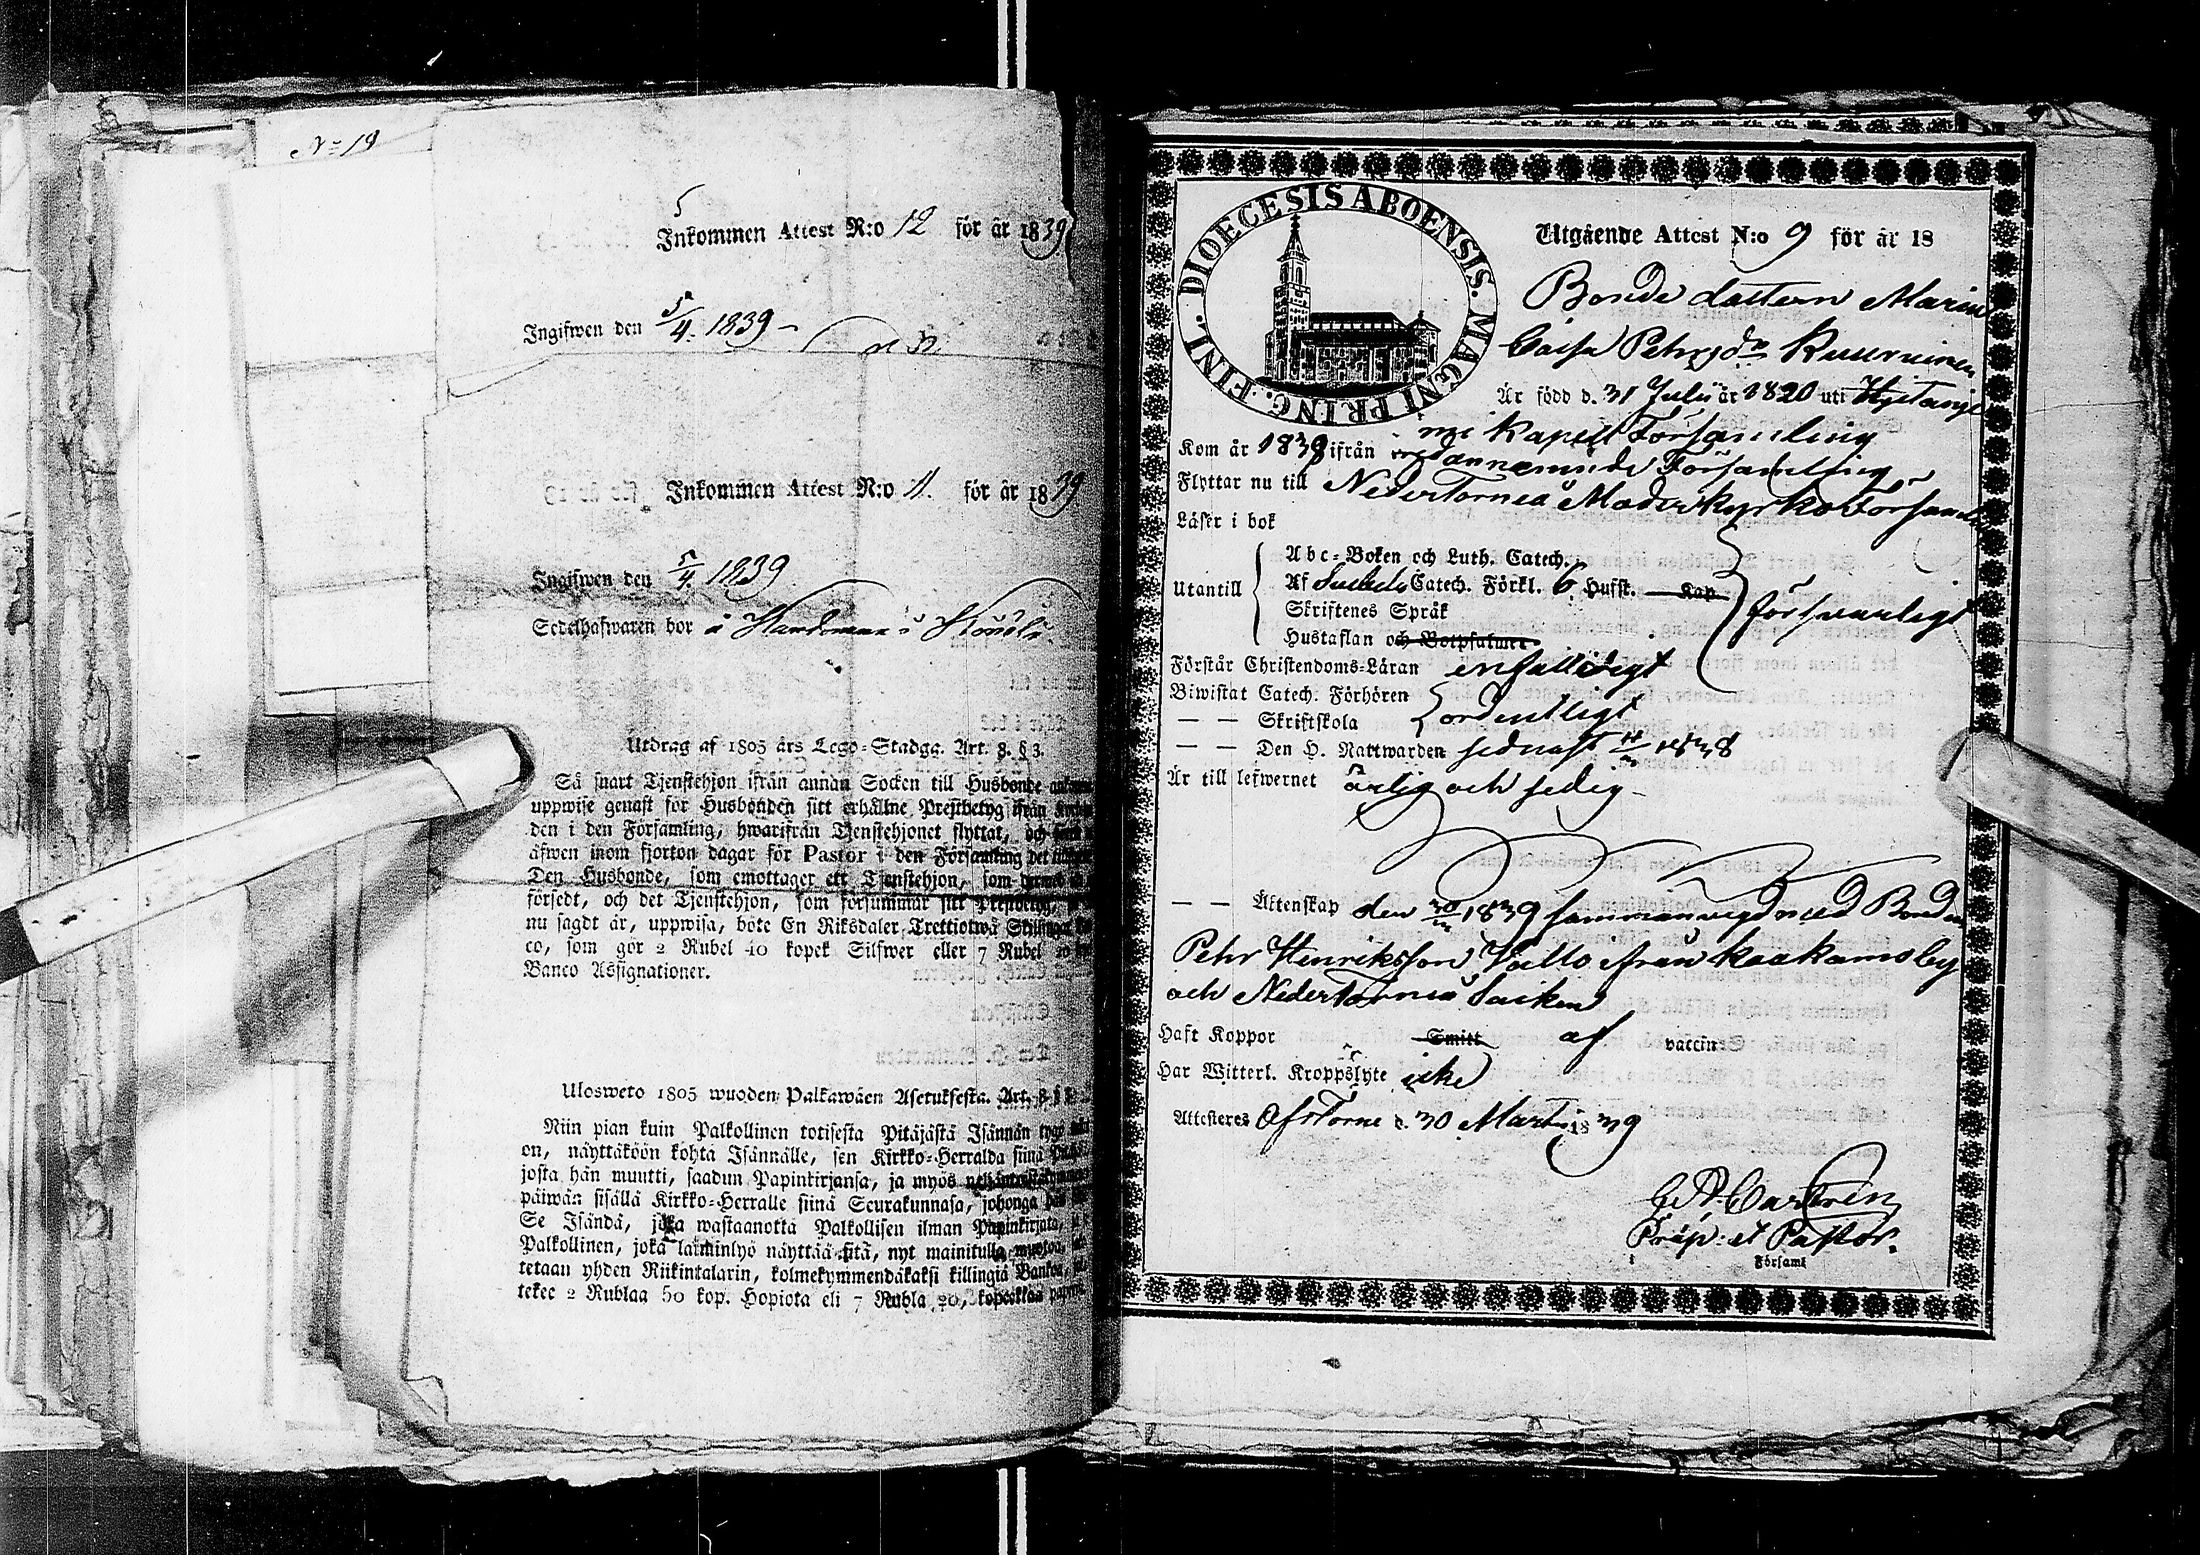 No 19
Inkommen Attest N:o 12 för år 1839
Ingifwen den 5/4. 1839
Inkommen Attest N:o 11. för år 1839
Ingifwen den 5/4. 1839
Sedelhafwaren bor å
Utdrag af 1805 års Lego-Stadga. Art. 8. § 3.
Så snart Tjenstehjon ifrån annan Socken till Husbonde
uppwise genast för Husbonden sitt erhållne Prestbetyg ifrån
den i den Församling, hwarifrån Tjenstehjonet flyttat, och
äfwen inom fjorton dagar för Pastor i den Församling det
Den Husbonde, som emottager ett Tjenstehjon, som
försedt, och det Tjenstehjon, som försummar sitt Prestbetyg,
nu sagdt är, uppwisa, böte En Riksdaler Trettiotwå Skillingar
co, som gör 2 Rubel 40 kopek Silfwer eller 7 Rubel 20
Banco Assignationer.
Ulosweto 1805 wuoden Palkawäen Asetuksesta. Art. 8 §
Niin pian kuin Palkollinen toisesta Pitäjästä Isännän tygö
on, näyttäköön kohta Isännälle, sen Kirkko-Herralda siinä
josta hän muutti, saadun Papinkirjansa, ja myös
päiwän sisällä Kirkko-Herralle siinä Seurakunnasa, johonga
Se Isändä, joka wastaanotta Palkollisen ilman Papinkirjata,
Palkollinen, joka laiminlyö näyttää sitä, nyt mainitulla muotoa,
tetaan yhden Riikintalarin, kolmekymmendäkaksi killingiä Bankoa,
tekee 2 Rublaa 50 kop. Hopiota eli 7 Rubla 20, kopeekkaa
DIOECESIS ABOENSIS. MAGNI PRINC. FINL.
Utgående Attest N:o 9 för år 18
Bonde dottern Maria
Caisa Petrsdr Kuurninen
Är född d. 31 Julii år 1820 uti Hjetanje
mi Kapell Församling
Kom år 1839 ifrån nedannemnde Församling
Flyttar nu till NederTorneå Moderkyrko Församl
Läser i bok
Utantill
Abc-Boken och Luth. Catech.
Af Catech. Förkl. 6. Hufst. Kap
Skriftenes Språk
Hustaflan och Botpsalmer
försvarligt
Förstår Christendoms-Läran enfalldigt
Biwistat Catech. Förhören
— — Skriftskola ordentligt
— — Den H. Nattwarden sednast 1838
Är till lefwernet ärlig och sedig
— — Äktenskap den 30 1839 sammanvigd med Bonden
Petr Henriksson Vallo ifrån Kaakamo by
och NederTorneå Socken
Haft Koppor Smitt af vaccin
Har Witterl. Kroppslyte icke
Attesteres ÖfrTorne d. 30 Martii 1839
Castrén
Präp: et Pastor.
i Församl